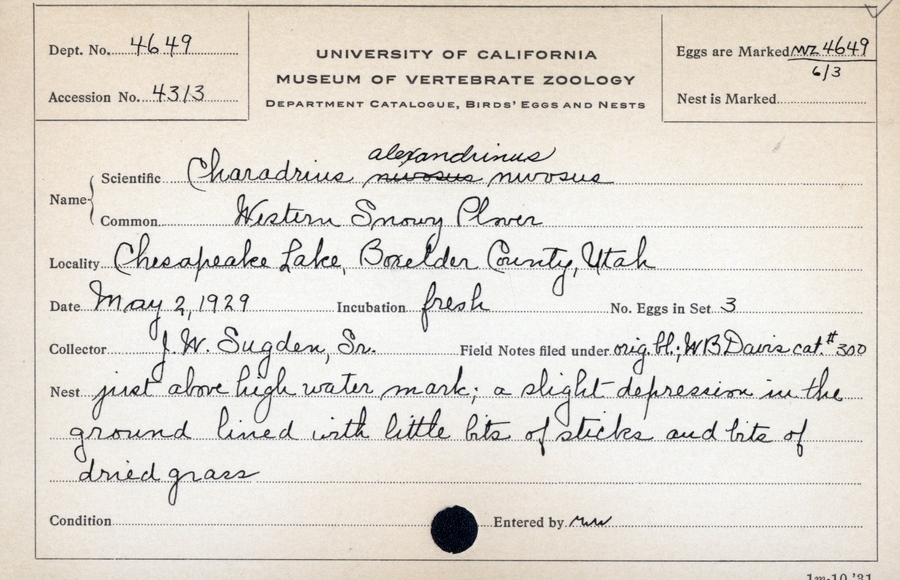 Dept. No. 4649
Accession No. 4313
UNIVERSITY OF CALIFORNIA
MUSEUM OF VERTEBRATE ZOOLOGY
DEPARTMENT CATALOGUE, BIRDS' EGGS AND NESTS
Eggs are Marked MVZ 4649
6/3
Nest is Marked
alexandrinus
Name Scientific Charadrius nivosus nivosus
Common Western Snowy Plover
Locality Chesapeake Lake, Boxelder County, Utah
Date May 2, 1929 Incubation fresh No. Eggs in Set 3
Collector J. W. Sugden, Sr. Field Notes filed under orig. bl.; WB Davis cat. # 300
Nest just above high water mark; a slight depression in the
ground lined with little bits of sticks and bits of
dried grass
Condition Entered by
1m-10,'31